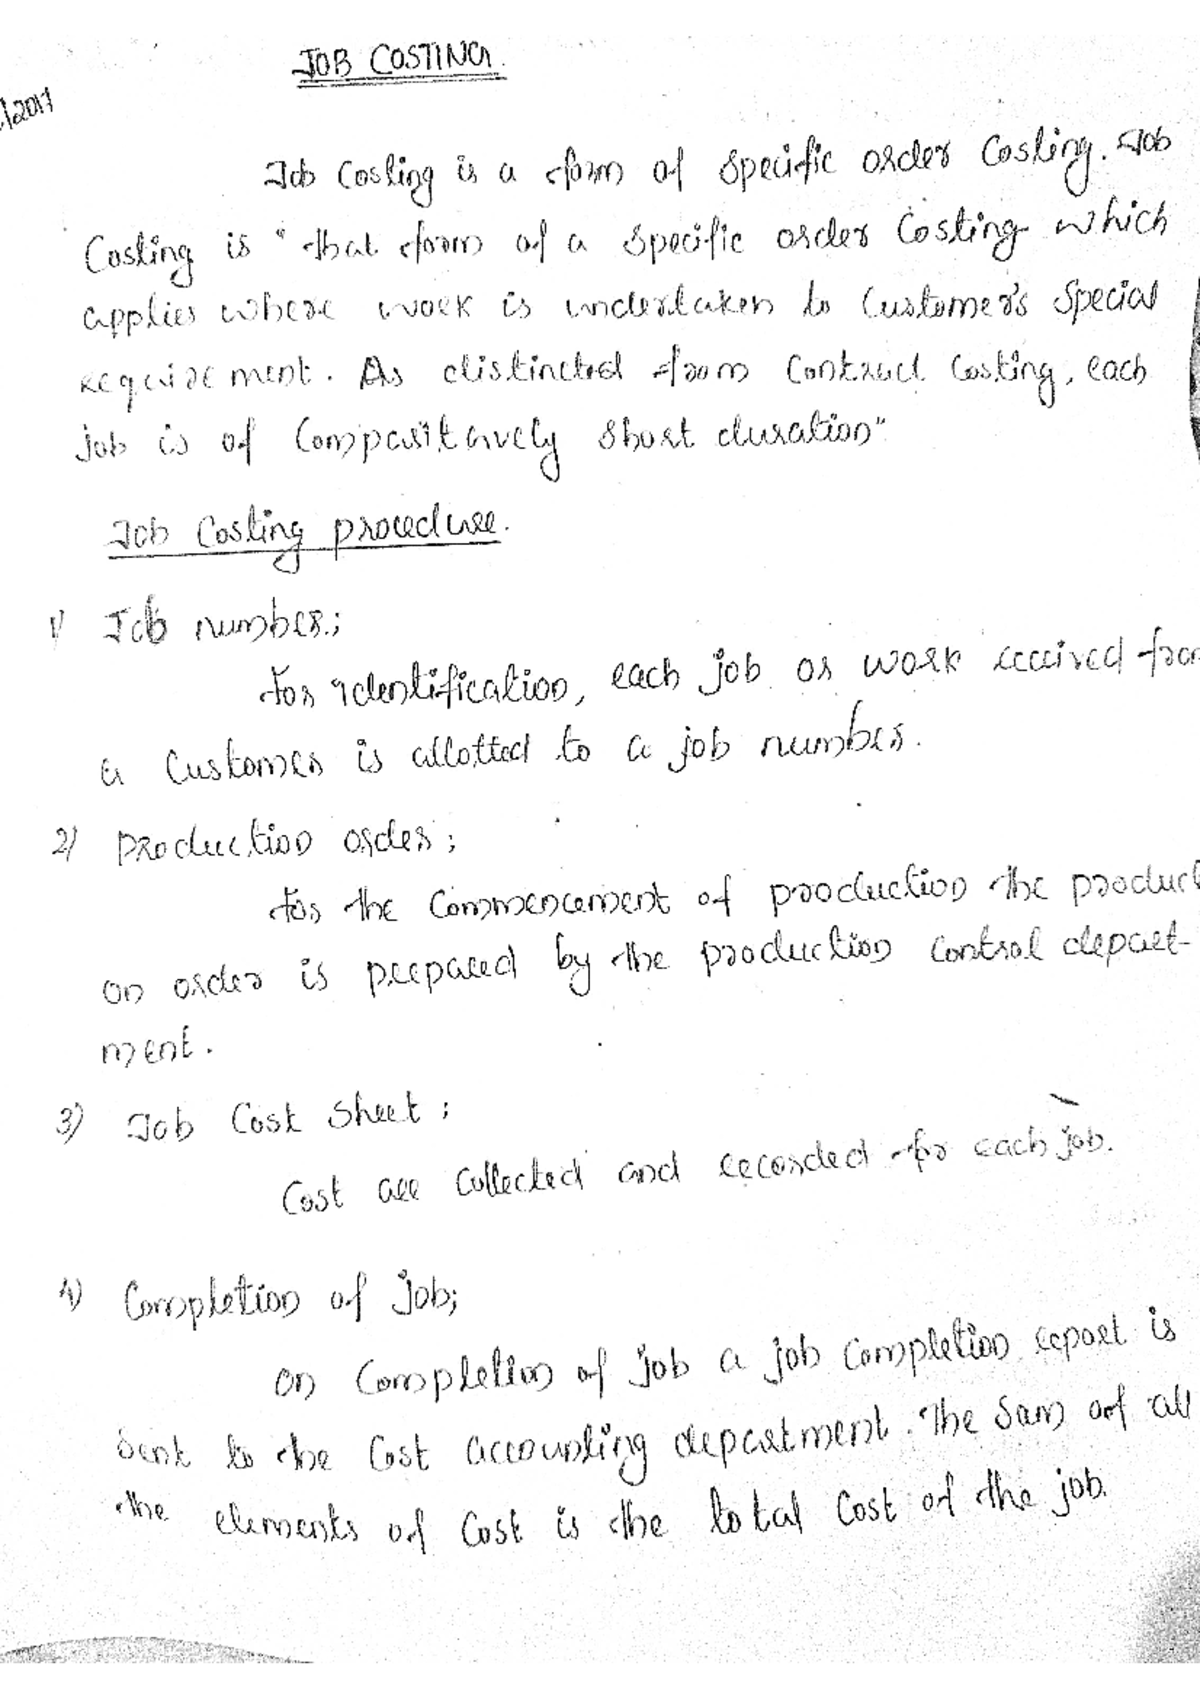 JOB COSTING.
/2017
Job Costing is a form of specific order Costing. Job
Costing is "that form of a specific order Costing which
applies where work is undertaken to Customer's Special
requirement. As distincted from Contract Costing, each
job is of Comparitavely short duration"
Job Costing procedure.
1) Job number.;
For identification, each job or work received from
a Customer is allotted to a job number.
2) Production order;
For the Commencement of production the producti
on order is prepared by the production control depart-
ment.
3) Job Cost sheet;
Cost are collected and recorded for each job.
4) Completion of job;
on Completion of job a job completion report is
sent to the Cost accounting department. The Sum of all
the elements of Cost is the total Cost of the job.